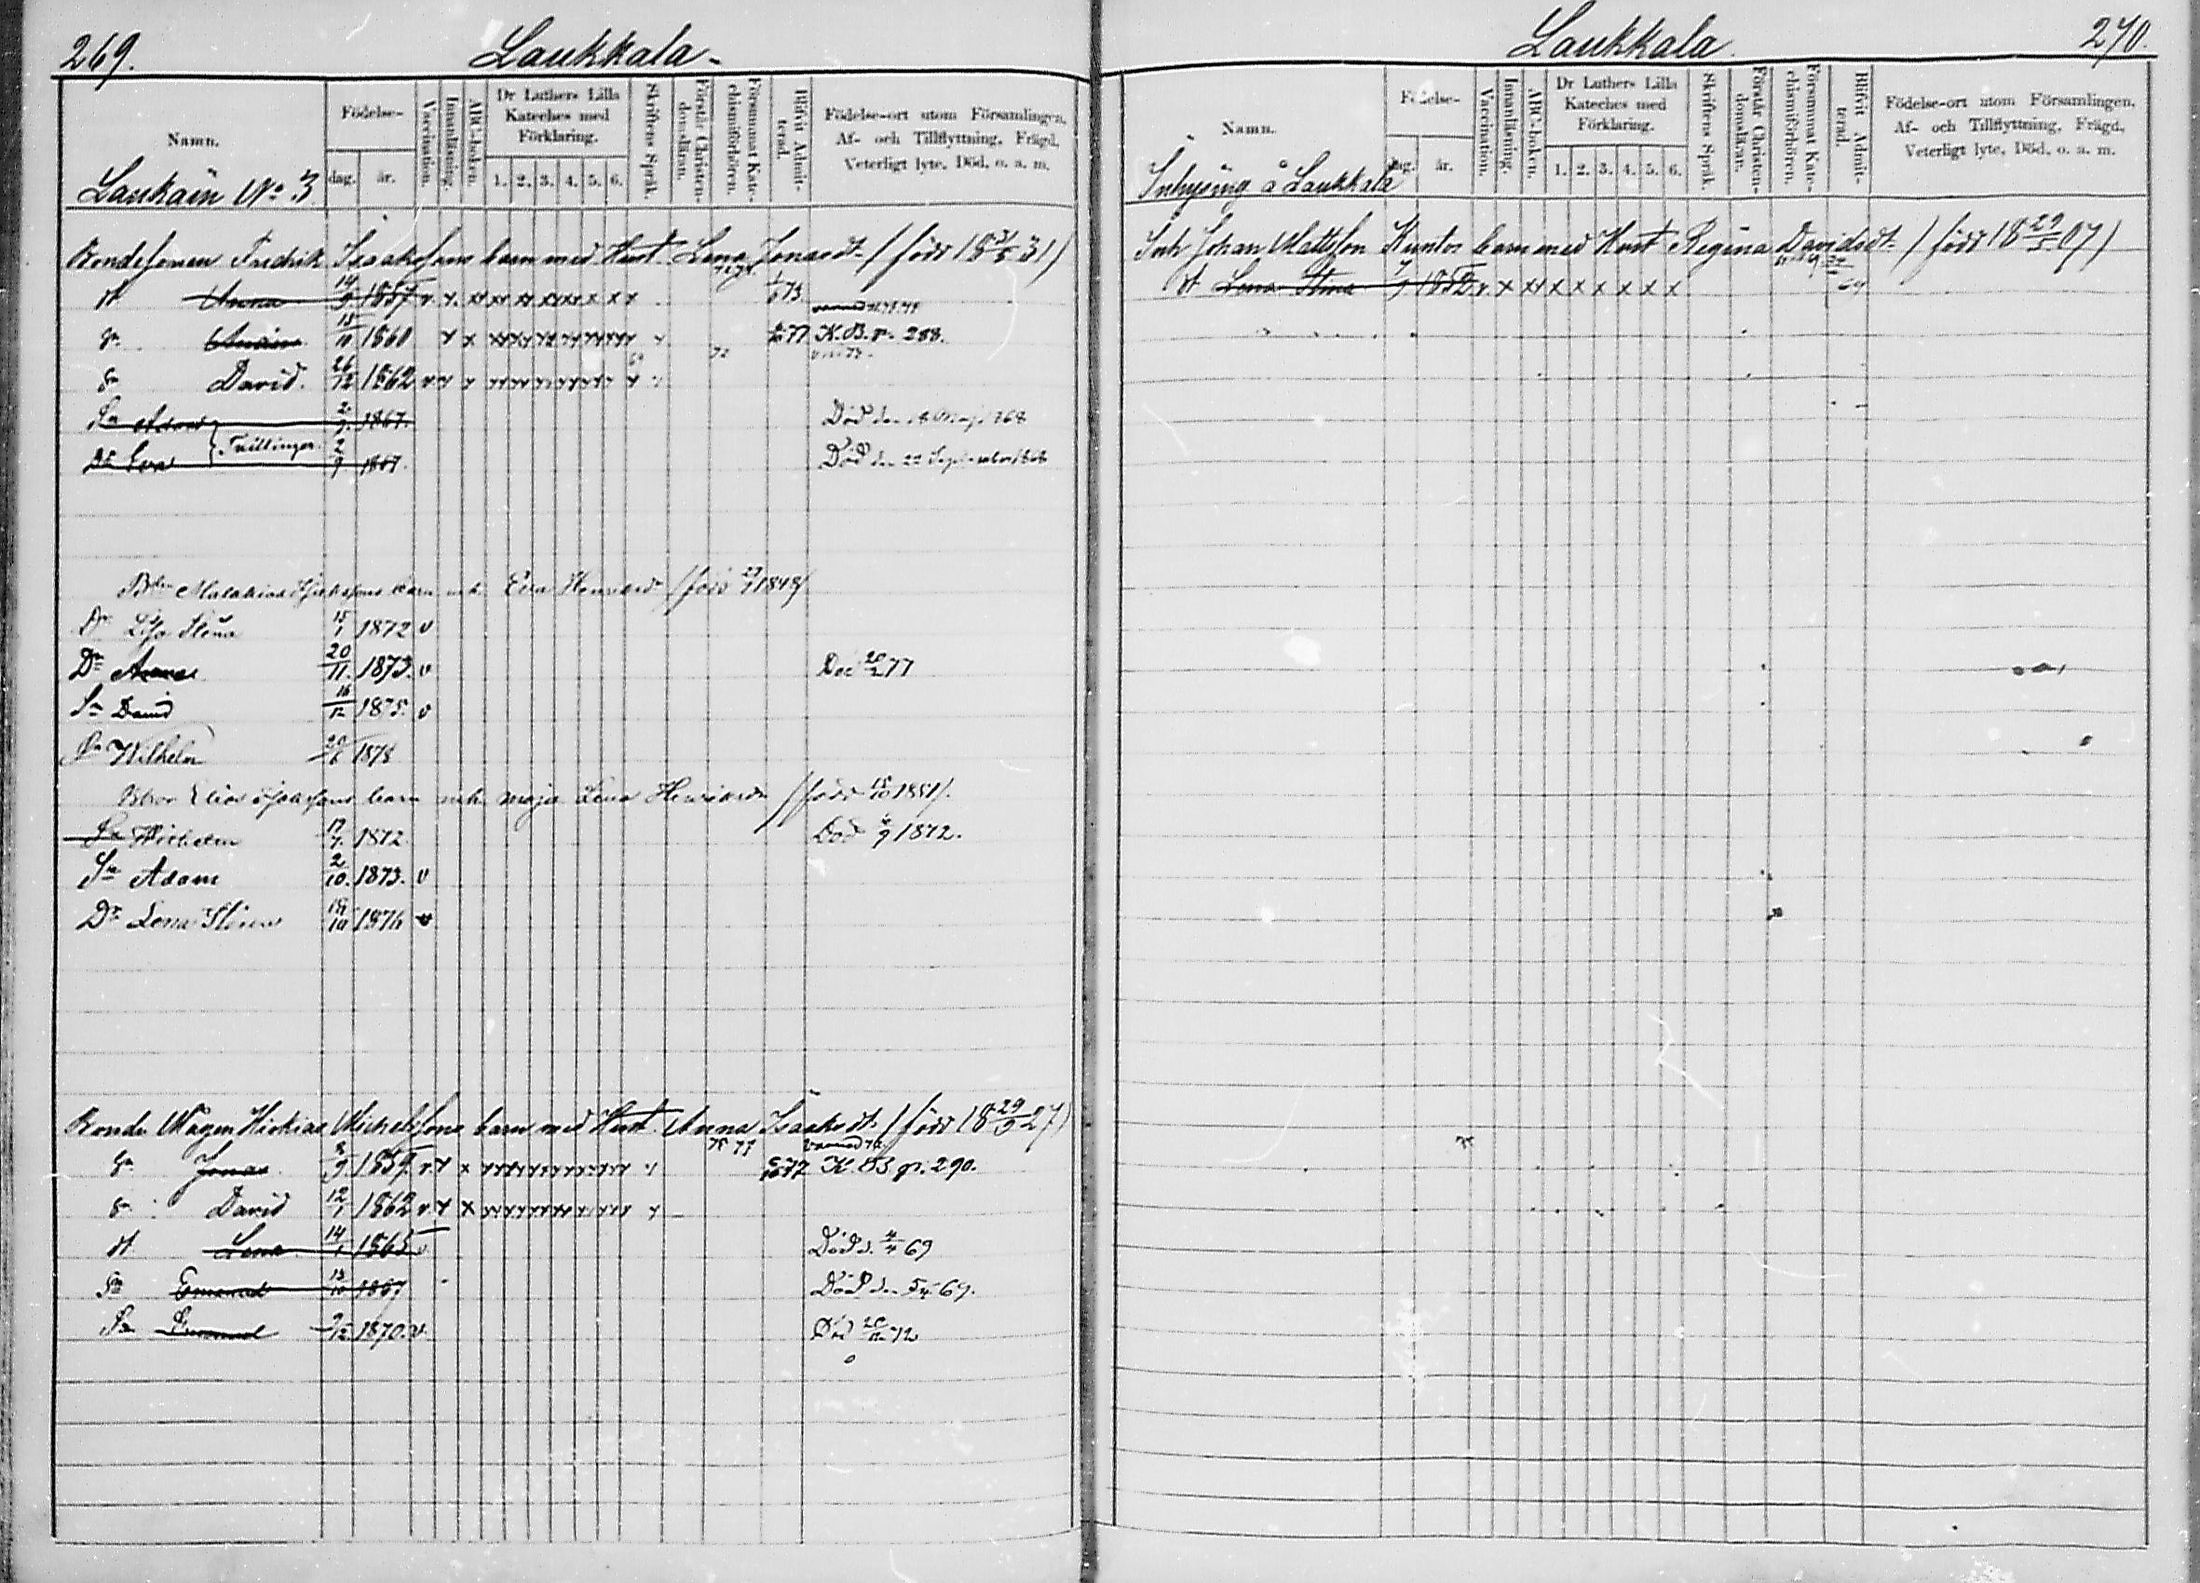 269.
Laukkala
Namn.
Födelse-
dag.
år.
Vaccination.
Innanläsning.
ABC-boken.
Dr Luthers Lilla
Kateches med
Förklaring.
1. 2. 3. 4. 5. 6.
Skriftens Språk.
Förstår Christen-
domsläran.
Försummat Kate-
chismiförhören.
Blifvit Admit-
terad.
Födelse-ort utom Församlingen,
Af- och Tillflyttning, Frägd,
Veterligt lyte, Död, o. a. m.
Laukain No 3
Bondesonen Fredrik Isaakssons barn med Hust. Lena Jonasdt. (född 18 31)
dt Anna 14/9 1857 v
Sn 1860 77 K.B. p. 288.
Sn David. 26/12 1862
Sn Adam 2/9 1867. Död den
Tvillingar
Dr Eva 2/9 1867. Död den 22 September
barn m. h. Eva (född 1848)
Dr Lisa Stina 15/1 1872 v
Dr Anna 20/11. 1873. v Död 20/2 77
Sn David 16/12 1875. v
Sn Wilhelm 20/6 1878
Elias barn m.h. Maja Lena Henriksdr (född 15/10 1851).
Sn Wilhelm 17/7. 1872. Död 9 1872.
Sn Adam 2/10. 1873. v
Dr Lena Stina 1876 v
Bonde Mågen Hiskias Michelssons barn med Hust. Anna Isaaksdt. (född 18 29/9 27)
75 77
Sn Jonas 9 1859. v 77 K B p. 290.
Sn David 12/1 1862 v
dt Lena 14/1 1865 v Död d. 4/4 69
Sn Emanuel 13/10 1867 Död den 5/4 69.
Sn Emanuel 9/12 1870. v. Död 20/12 72
Laukkala.
270.
Namn.
Födelse-
dag.
år.
Vaccination.
Innanläsning.
ABC-boken.
Dr Luthers Lilla
Kateches med
Förklaring.
1. 2. 3. 4. 5. 6.
Skriftens Språk.
Förstår Christen-
domsläran.
Försummat Kate-
chismiförhören.
Blifvit Admit-
terad.
Födelse-ort utom Församlingen,
Af- och Tillflyttning, Frägd,
Veterligt lyte, Död, o. a. m.
Inhysing å Laukkala
Inh Johan Mattsson Kuntos barn med Hust Regina Davidsdt. (född 18 29/5 07)
dt Lena Stina 1852 v x xx x x x x x x 69